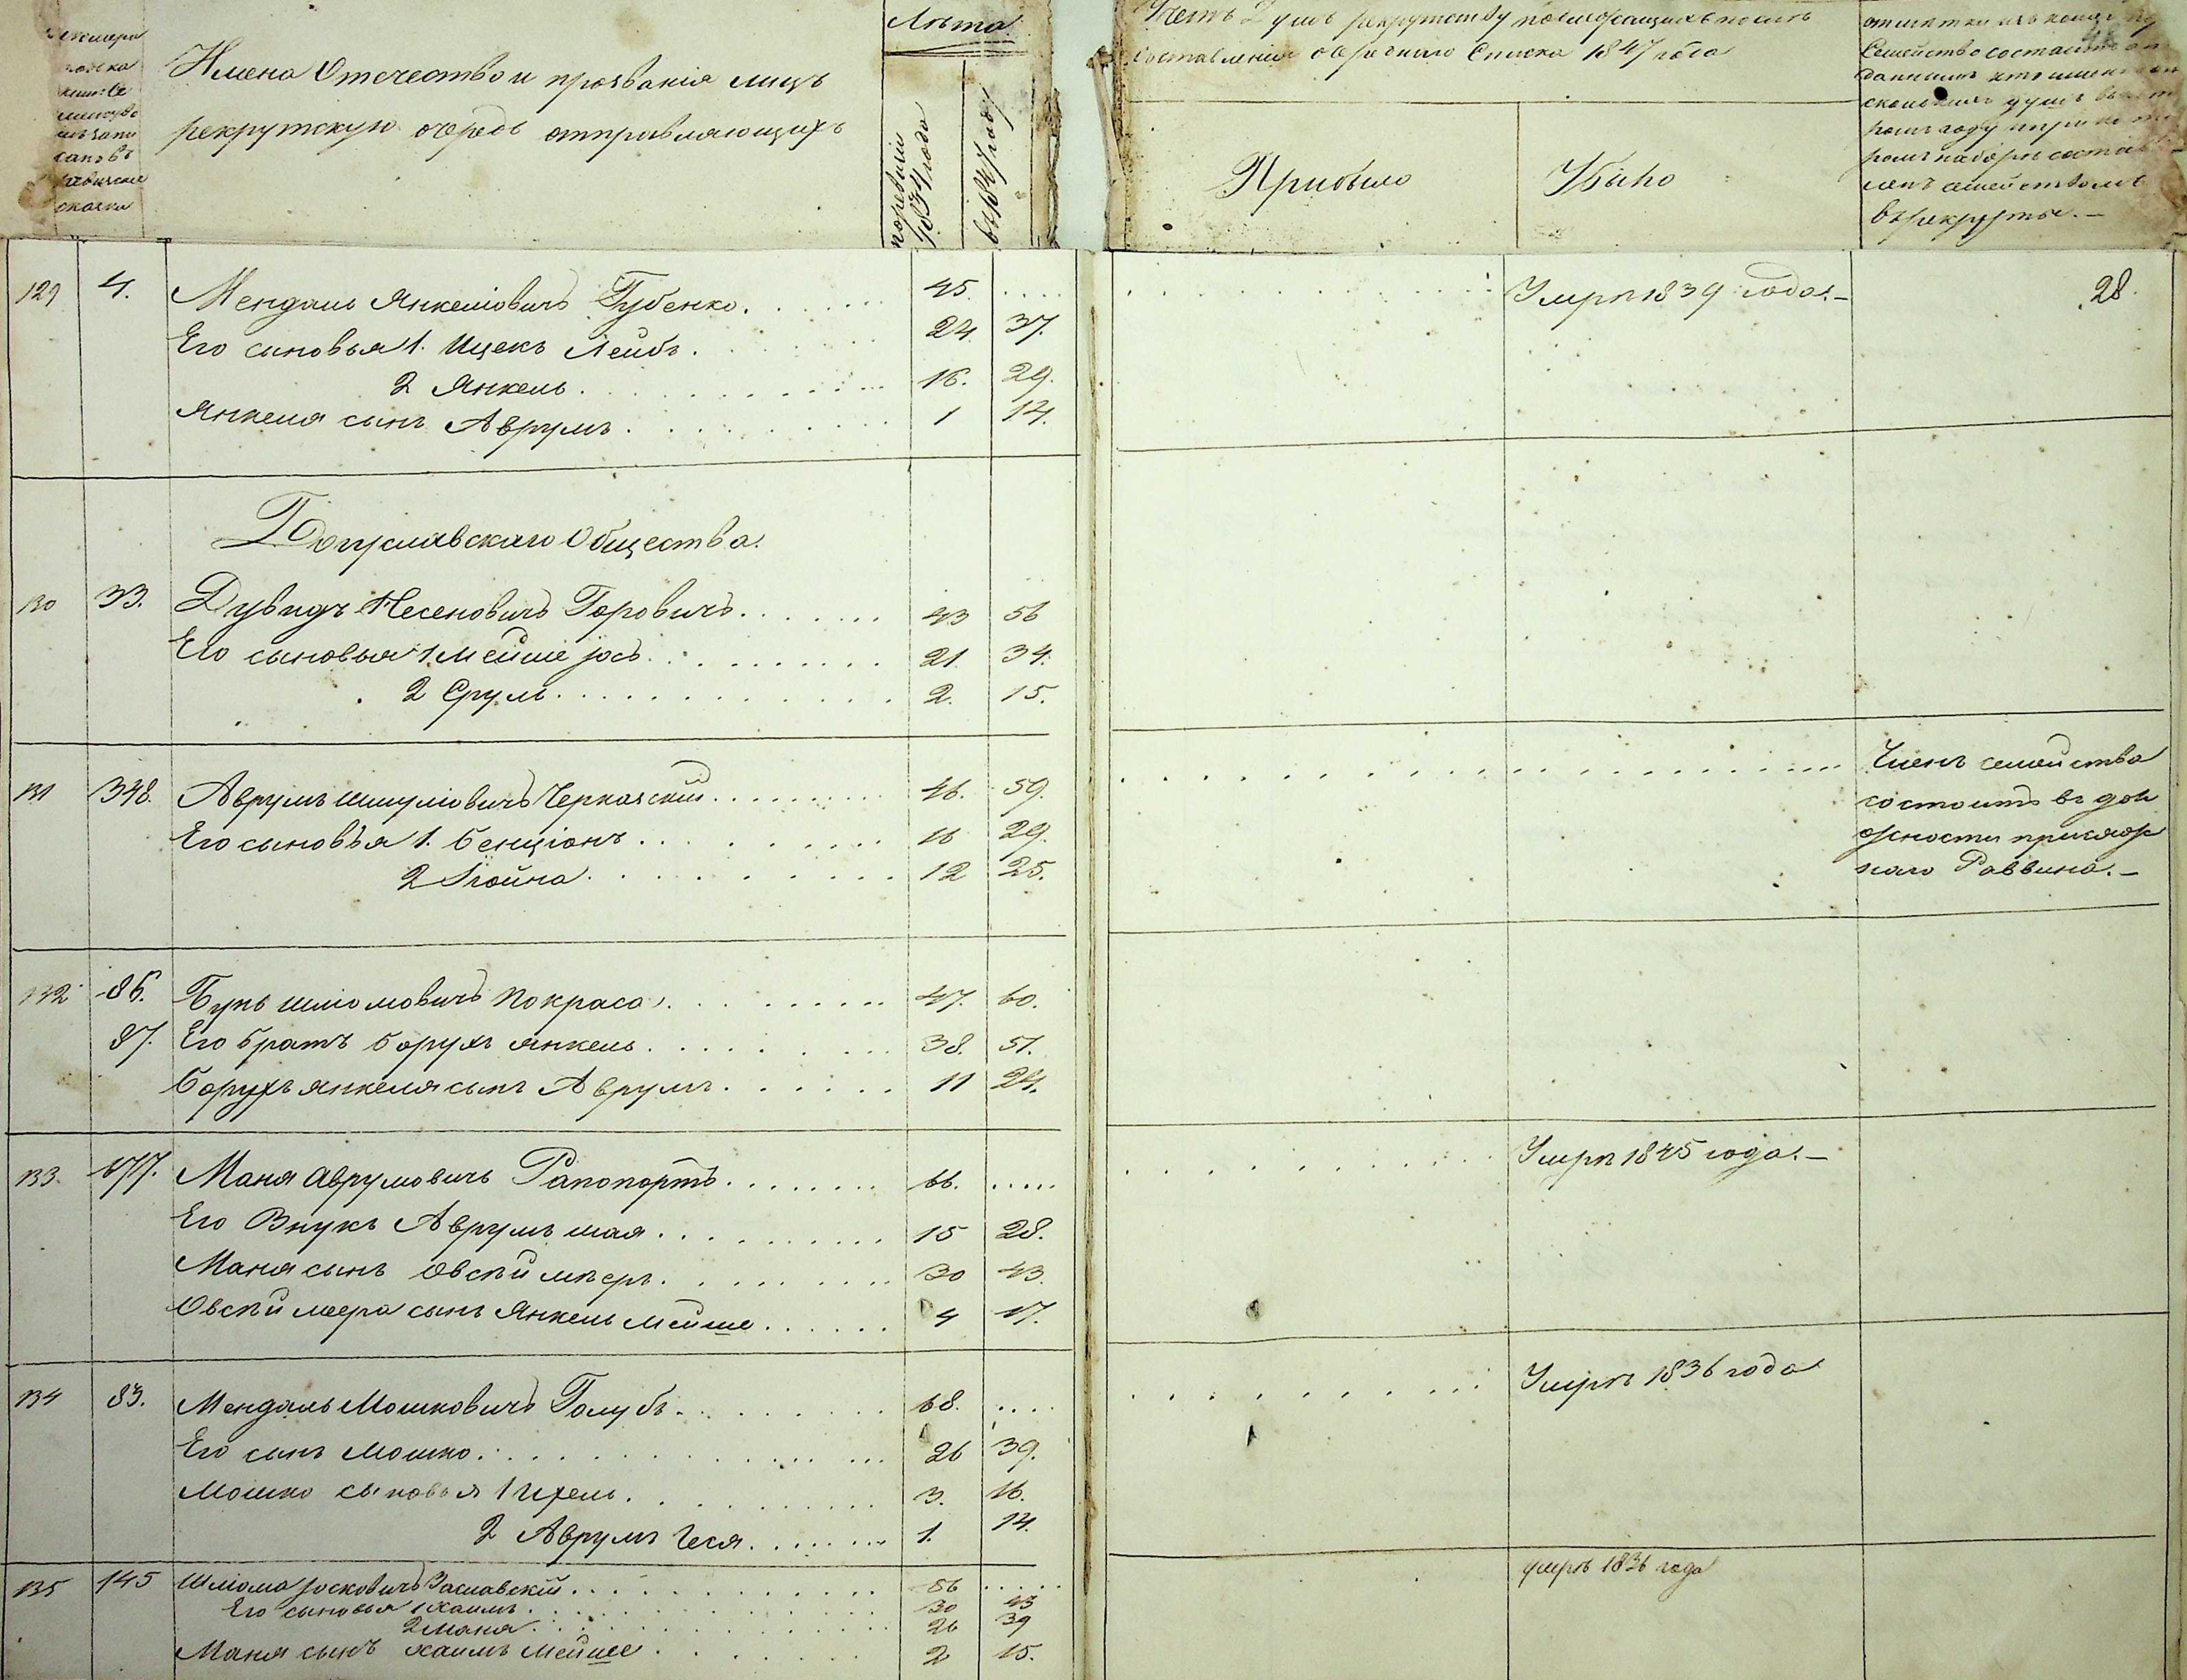 Лѣта
Имена Отечество и прозванія лицъ
рекрутскую очередь отправляющихъ
по ревизіи 1834 года
въ 1847 году
составленія очереднаго Списка 1847 года
Прибыло
Убыло
Семейство состоитъ
въ рекруты.—
129 4. Мендаль Янкеліовичъ Губенко. 45. Умръ 1839 года.— 28.
Его сыновья 1. Ицекъ Лейбъ. 24. 37.
2 Янкель. 16. 29.
Янкеля сынъ Аврумъ. 1 14.
Богуславскаго Общества.
130 33. Дувидъ Несеновичъ Горовичъ. 43 56
Его сыновья 1. Мейше Іось. 21. 34.
2 Сруль. 2. 15.
131 348. Аврумъ Шмуліовичъ Черкаскій. 46. 59. Членъ семейства
состоитъ въ дол
Его сыновья 1. Бенціонъ. 16 29. жности присяж
2 Іойна. 12 25. наго Раввина.—
132 86. Бунь Шліомовичъ Покраса. 47. 60.
87. Его братъ Борухъ Янкель. 38. 51.
Борухъ Янкеля сынъ Аврумъ. 11 24.
133. 677. Маня Аврумовичъ Рапопортъ. 66. Умръ 1845 года.—
Его Внукъ Аврумъ 15 28.
Маня сынъ Овсѣй Мѣеръ. 30 43.
Овсѣй Меера сынъ Янкель Мейше. 4 17.
134 83. Мендаль Мошковичъ Голубъ. 68. Умръ 1836 года
Его сынъ Мошко. 26 39.
Мошко сыновья 1 Ихель. 3. 16.
2 Аврумъ Геся. 1. 14.
135 145 Шліома Іосковичъ Заславскій. 56 умръ 1836 года
Его сыновья 1 Хаимъ. 30 43
2 Маня. 26 39
Маня сынъ Хаимъ Мейше 2 15.